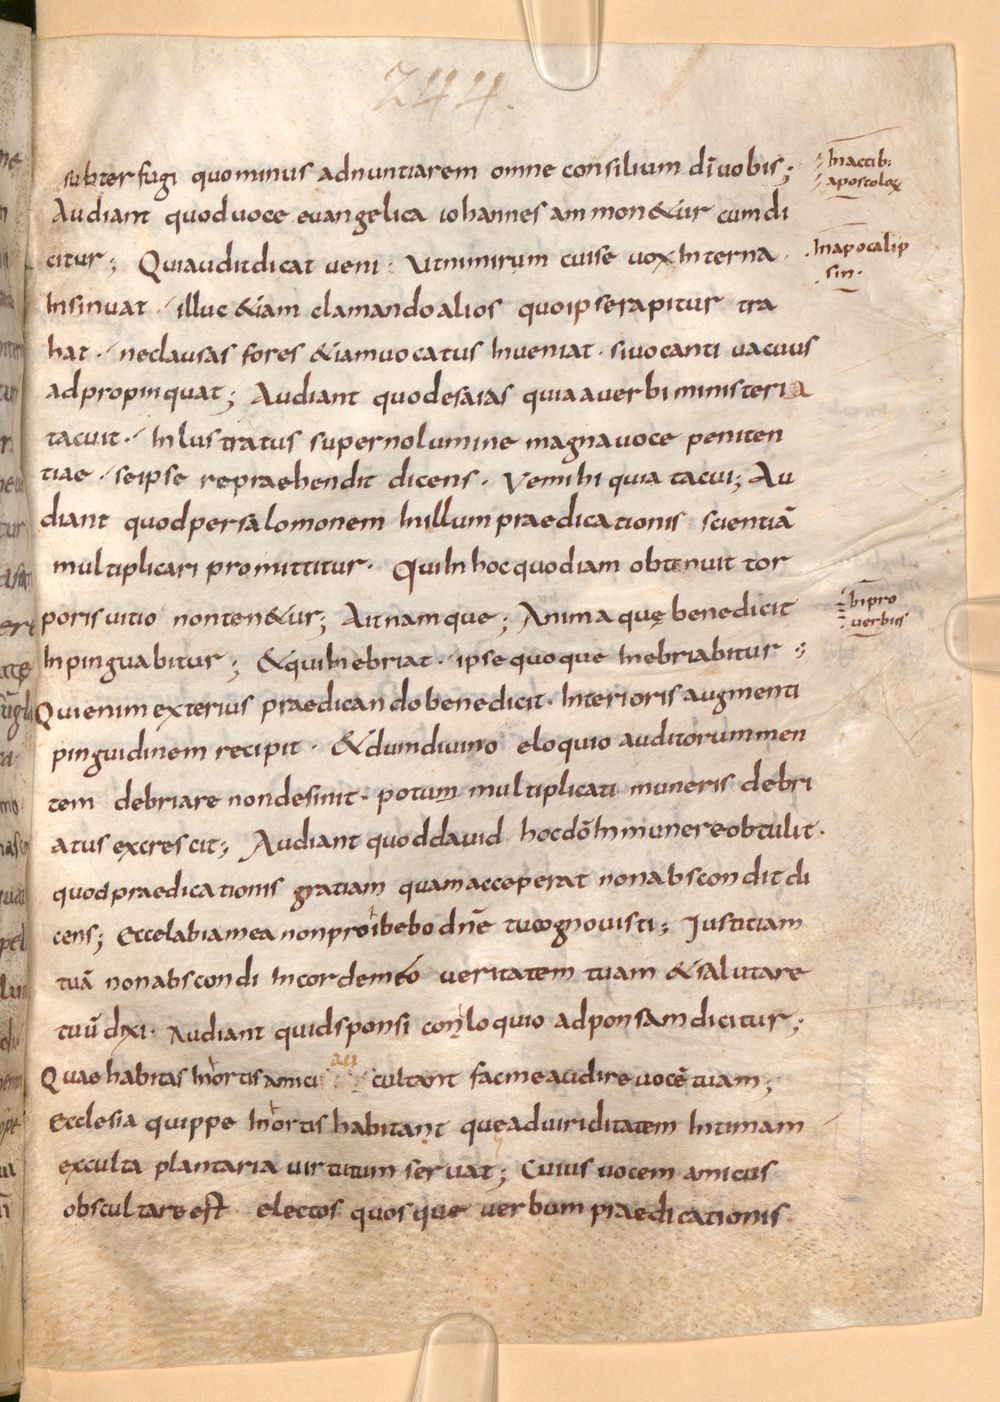 244.
subterfugi quominus adnuntiarem omne consilium dī vobis;
In actib;
apostoloꝝ
Audiant quod voce evangelica iohannes ammon&ur cum di
citur; Qui audit dicat veni· Ut nimirum cui se vox interna·
In apocalip
sin·
Insinuat· illuc &iam clamando alios quo ipse rapitur tra
hat· ne clausas fores &iam vocatus inveniat· si vocanti vacuus
adpropinquat; Audiant quod esaias quia a verbi ministeria
tacuit· Inlustratus superno lumine magna voce peniten
tiae· se ipse repraehendit dicens· Ve mihi quia tacui; Au
diant quod per salomonem In illum praedicationis scientiā
multiplicari promittitur· Qui In hoc quod iam obtenuit tor
poris vitio non ten&ur; Ait namque; Anima quę benedicit
In pro
verbiis
Inpinguabitur; & qui Inebriat· ipse quoque Inebriabitur;
Qui enim exterius praedicando benedicit· Interioris augmenti
pinguidinem recipit· & dum divino eloquio auditorum men
tem debriare non desinit· potum multiplicati muneris debri
atus excrescit; Audiant quod david hoc dō In munere obtulit·
quod praedicationis gratiam quam acceperat non abscondit di
cens; Ecce labia mea non proibebo dnē tu cognovisti; Justitiam
tuā non abscondi In corde meo veritatem tuam & salutare
tuū dixi· Audiant quid sponsi conloquio ad ponsam dicitur;
Quae habitas In ortis amici auscultant fac me audire vocē tuam;
Ecclesia quippe In ortis habitant que ad viriditatem Intimam
exculta plantaria virtutum servat; Cuius vocem amicus
obscultare est electos quosque verbum praedicationis